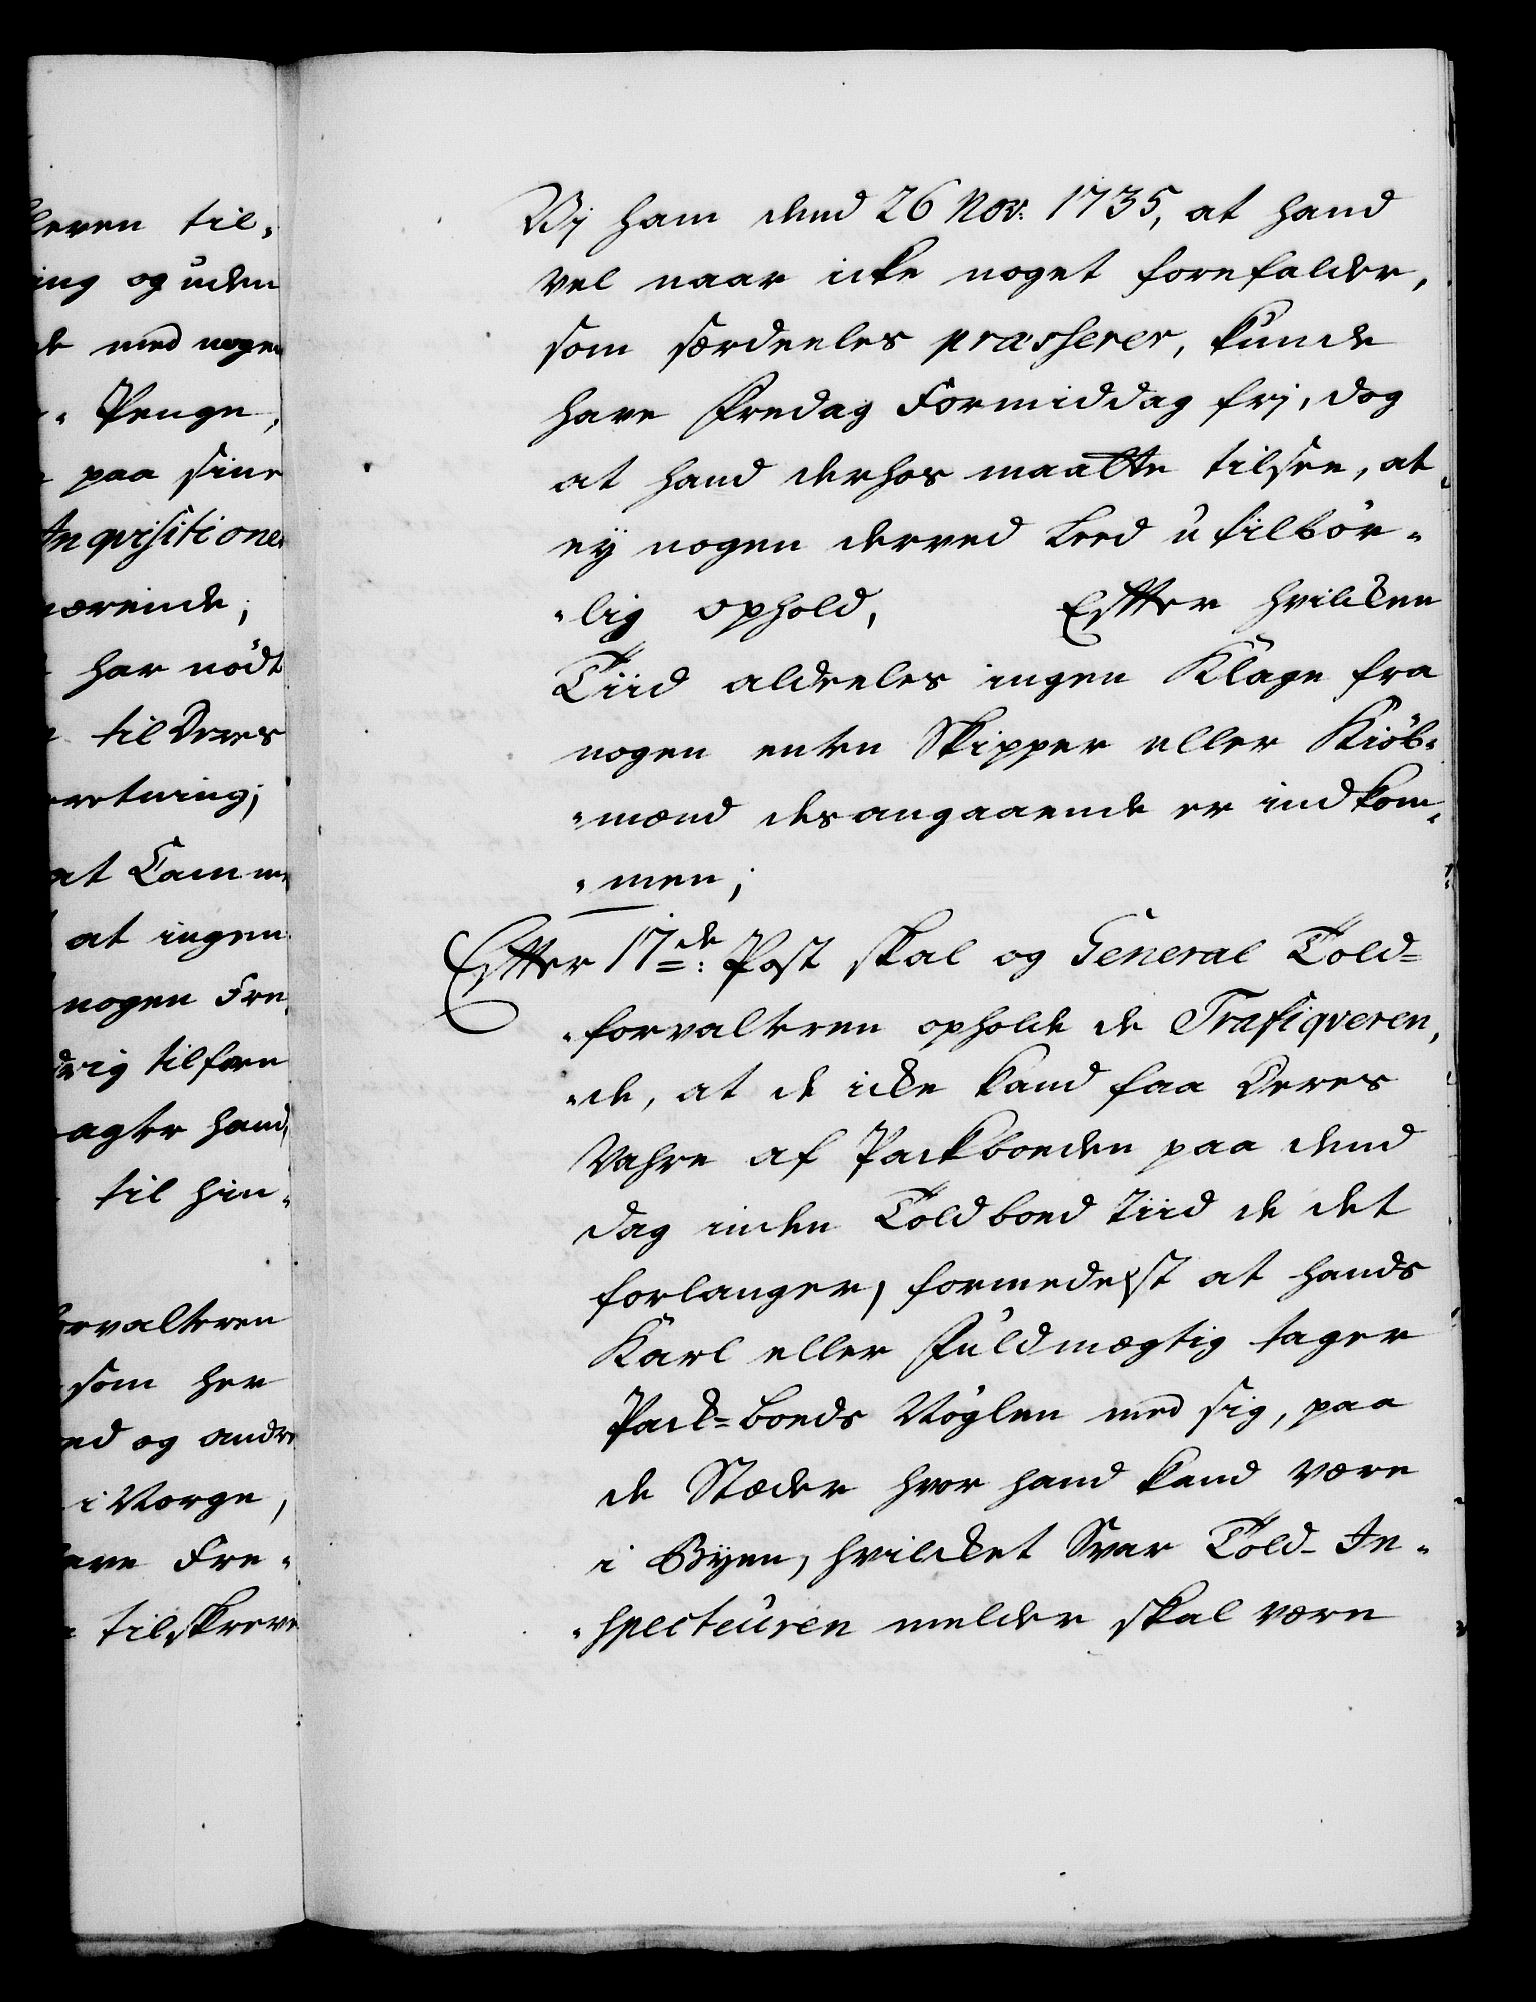 leven til„
ing og uden
de med nogen
„ Penge,
paa sine
Inqvisitione„
værende;
har nødt
til Deres
retning;
at Camm„
at ingen
nogen Fre„
drig tilforn
agter hand„
til hin„
orvalteren
som her
ed og andre
i Norge,
ave Fre„
tilskreve
Vj ham dend 26 Nov: 1735, at hand
vel naar icke noget forefalder,
som særdeeles præsserer, kunde
have Fredag Formiddag frj, dog
at hand derhos maatte tilsee, at
ey nogen derved Leed utilbør„
„lig ophold, Efter hvilcken
Tiid aldeeles ingen Klage fra
nogen enten Skipper eller Kiøb„
„mænd desangaaende er indkom„
„men;
Efter 17de: Post skal og General Told=
„forvalteren opholde de Trafiqveren„
„de, at de icke kand faa Deres
Vahre af Packboeden paa dend
dag inden Toldboed Tiid de det
forlanger, formedelst at hands
Karl eller Fuldmægtig tager
Pack=boeds Nøglen med sig, paa
de Stæder hvor hand kand være
i Byen, hvilcket Svar Told-In„
„specteuren melder skal være